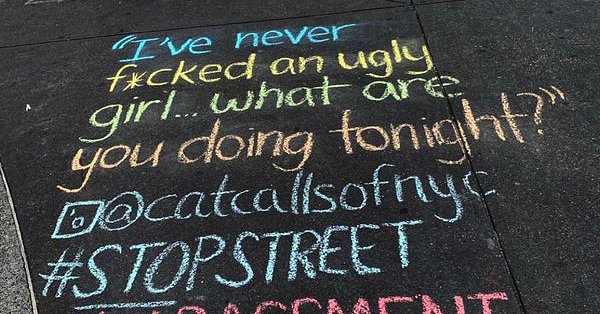 "I've never
f*cked an ugly
girl... what are
you doing tonight?"
@catcallsofnyc
#STOPSTREET